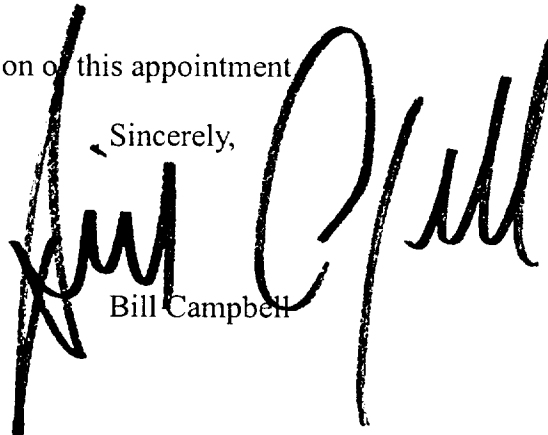 on of this appointment
Sincerely,
Bill Campbell